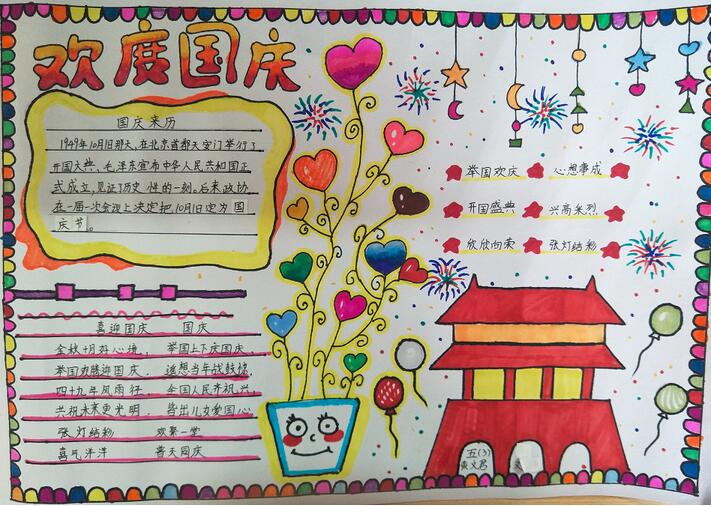 欢度国庆
国庆来历
1949年10月1日那天,在北京首都天安门举行了
开国大典,毛泽东宣布中华人民共和国正
式成立,见证了历史性的一刻,后来政协
在一届一次会议上决定把10月1日定为国
庆节。
举国欢庆 心想事成
开国盛典 兴高采烈
欣欣向荣 张灯结彩
喜迎国庆 国庆
金秋十月好心境, 举国上下庆国庆,
举国欢腾迎国庆, 遥想当年战鼓擂,
四十九年风雨征, 全国人民齐祝兴,
共祝未来更光明, 皆出儿女爱国心
张灯结彩 欢聚一堂
喜气洋洋 普天同庆
五(3)
黄文君